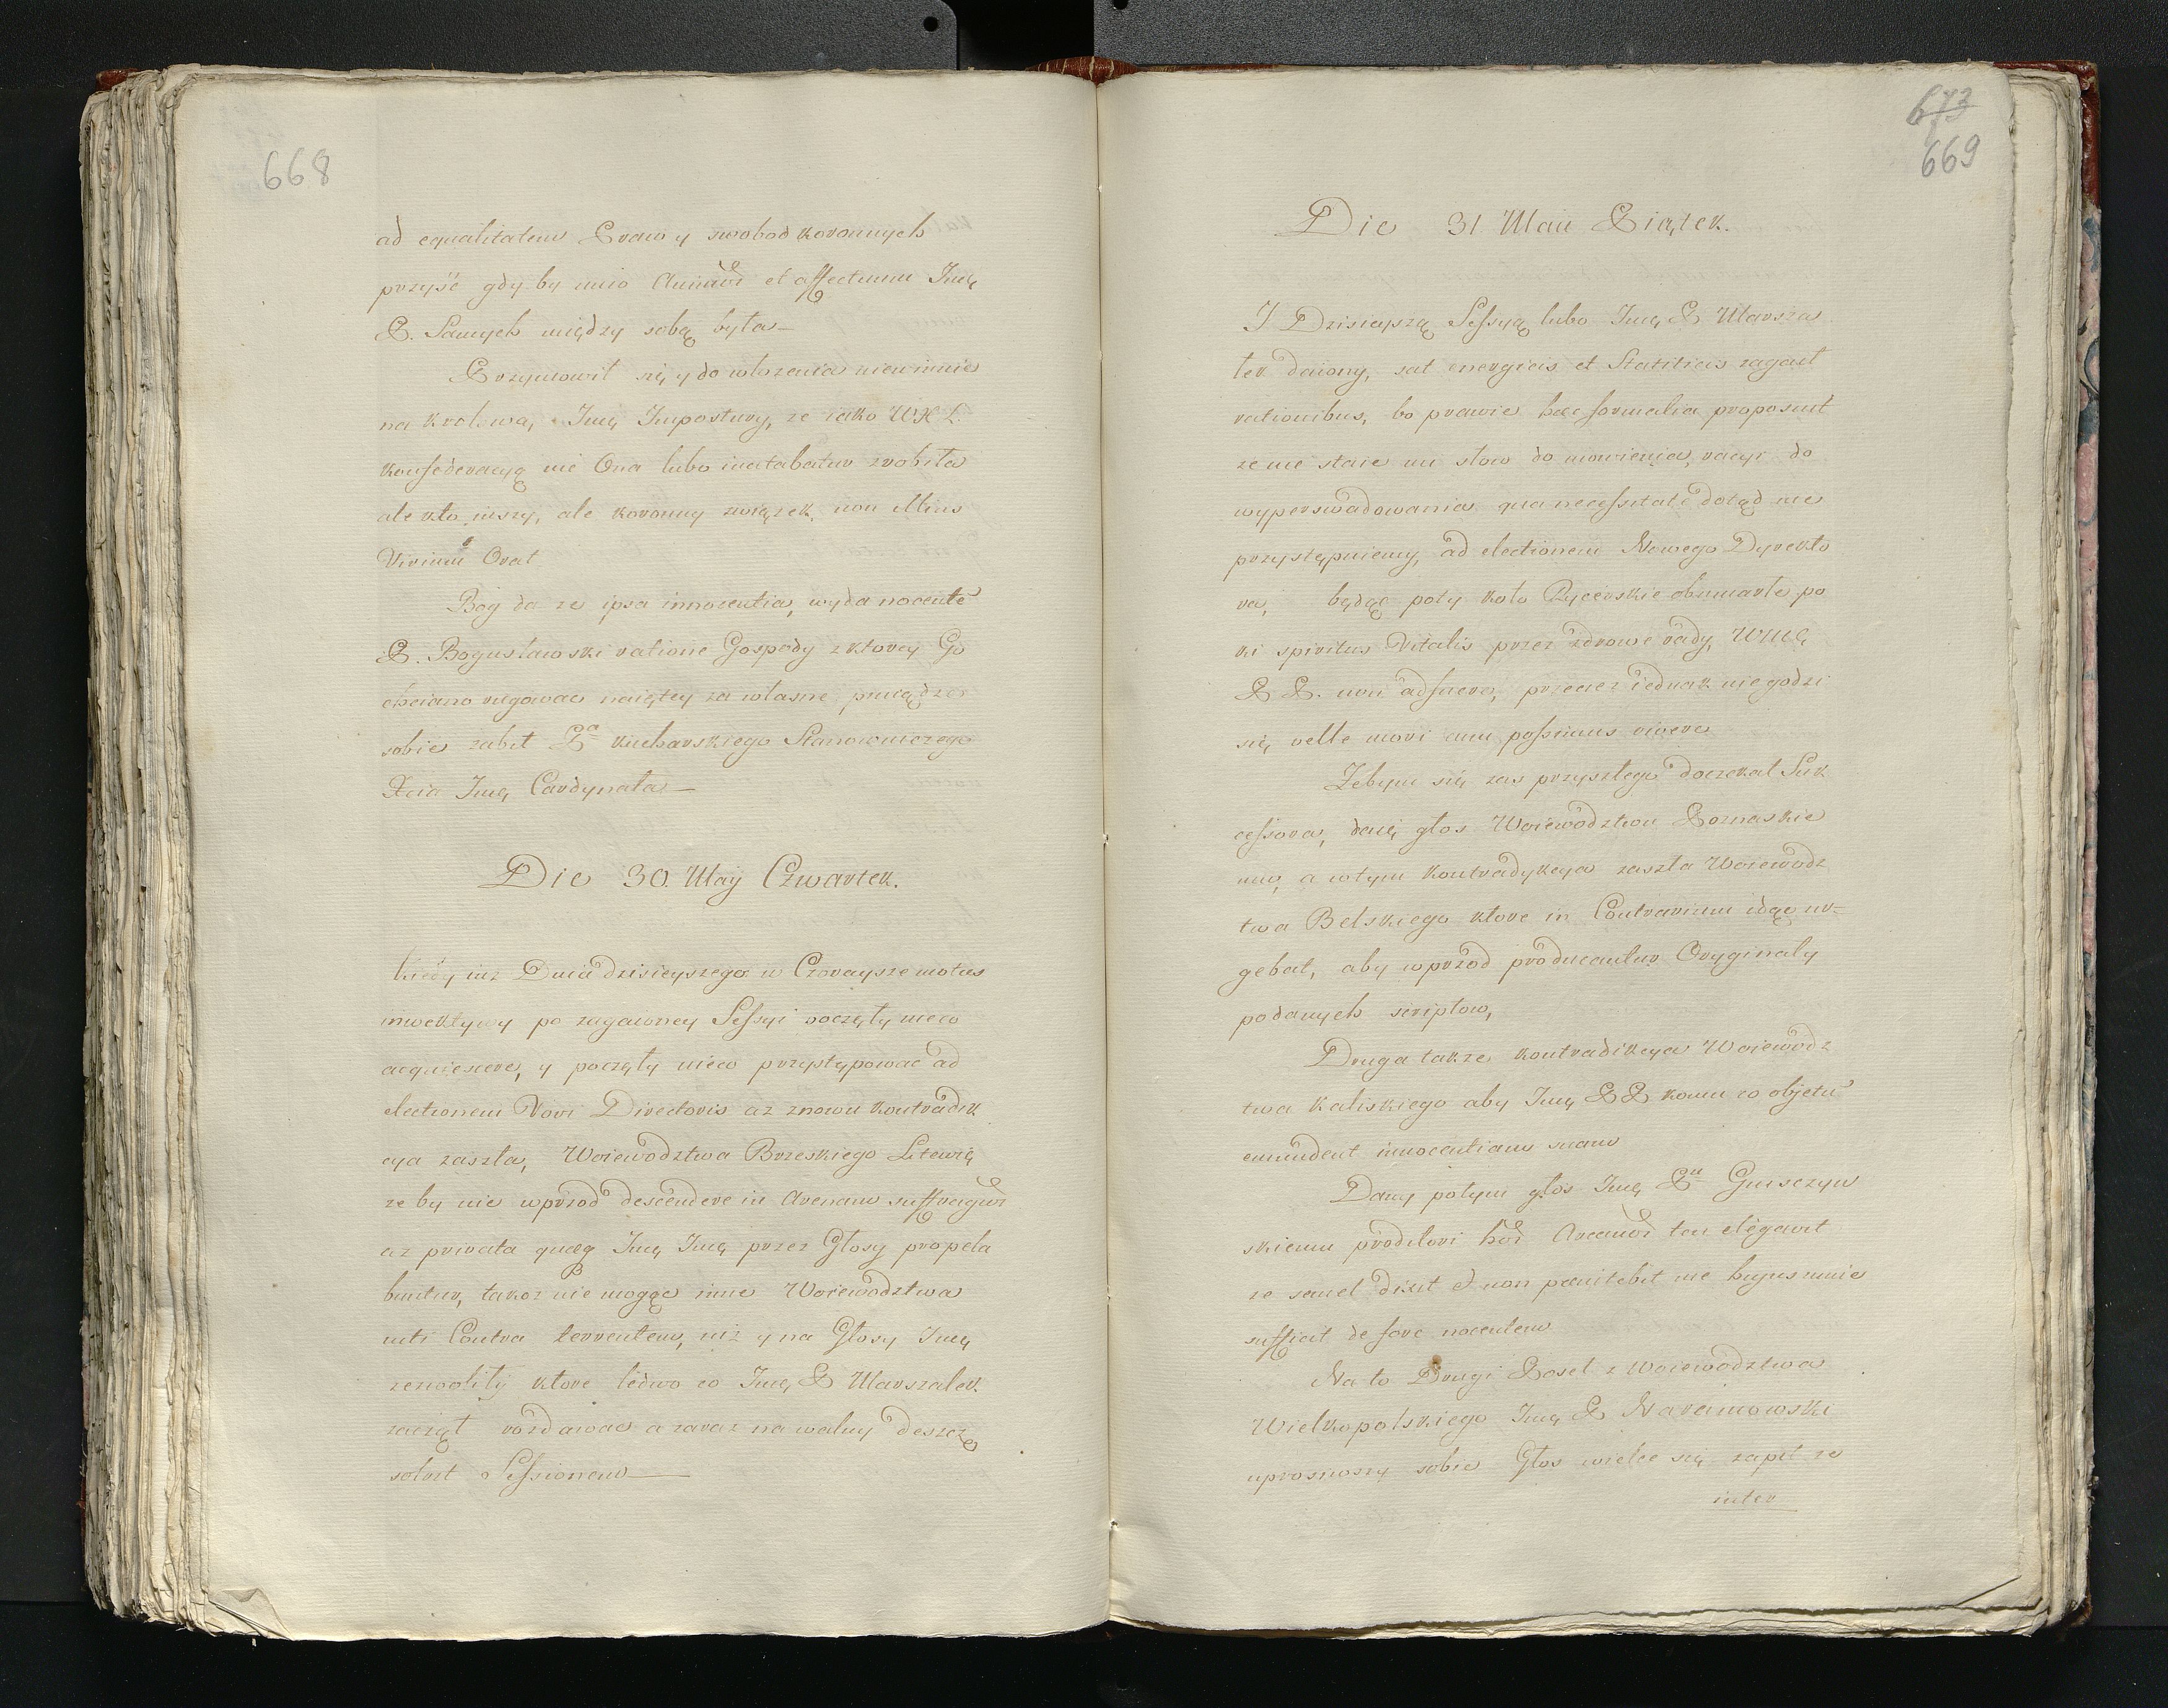 668
ad equalitatem Praw y swobod koronnych
przyść gdy by unio Animor̃ et affectuum Imę
P. Samych między sobą była—
Przymowił się y do włozenia niewinnie
na krolową Imę Impostury, ze iako WXL.
konfederacyą nie Ona lubo inatabatur zrobiła
ale kto inszy, ale koronny związek, non illius
Virium Erat.
Bog da ze ipsa innocentia, wyda nocente
P. Bogusławski ratione Gospody z ktorey Go
chciano rugować naiętey za własne pieniądze
sobie zabił Pa kucharskiego Stanowniczego
Xcia Imę Cardynała—
Die 30. May Czwartek.
kiedy iuz Dnia dzisieyszego w Czoraysze motus
inwektywy po zagaioney Sessyi poczęły nieco
acquiescere, y poczęły nieco przystępować ad
electionem Novi Directoris az znowu kontradik
cya zaszła, Woiewodztwa Brzeskiego Litewię
ze by nie wprzod descendere in Arenam suffragior̃
az privata quæq Imę Imę przez Głosy propela
buntur, takoz nie mogąc inne Woiewodztwa
niti Contra torrentem, niz y na Głosy Imę
zezwoliły ktore ledwo co Imę P Marszałek
zaczął rozdawac a zaraz nawalny deszcz
solvit Sessionem—
673
669
Die 31 Maii Piątek.
I Dzisieyszą Sessyą lubo Imę P Marsza
łek daiony, sat energicis et Statiticis zagaił
rationibus, bo prawie hæc formalia proposuit
ze nie staie mi słow do mowienia, racyi do
wyperswadowania qua necessitate dotąd nie
przystępuiemy, ad electionem Nowego Dyrekto
ra, będąc poty koło Rycerskie obumarłe po
ki spiritus Vitalis przez zdrowe rady, WMę
P P. non adfuero, przeciez iednak nie godzi
się velle mori cum possimus vivere
Zebym się zas przyszłego doczekał Suk
cessora, daię głos Woiewodztwu Poznaskie
mu, a wtym kontradykcya zaszła Woiewodz
twa Belskiego ktore in Contrarium idąc ur=
gebat, aby wprzod producantur Oryginały
podanych scriptow,
Druga takze kontradikcya Woiewodz
twa kaliskiego aby Imę PP komu co objetũ
emundent innocentiam suam
Dany potym głos Imę Pu Gniszczyn
skiemu proditori hor̃ Arcanor̃ ten elegavit
ze semel dixit et non pænitebit me hujus mnie
sufficit de fore nocentem
Na to Drugi Poseł z Woiewodztwa
Wielkopolskiego Imę P Naramowski
uprosiwszy sobie Głos wielce się zapił ze
inter